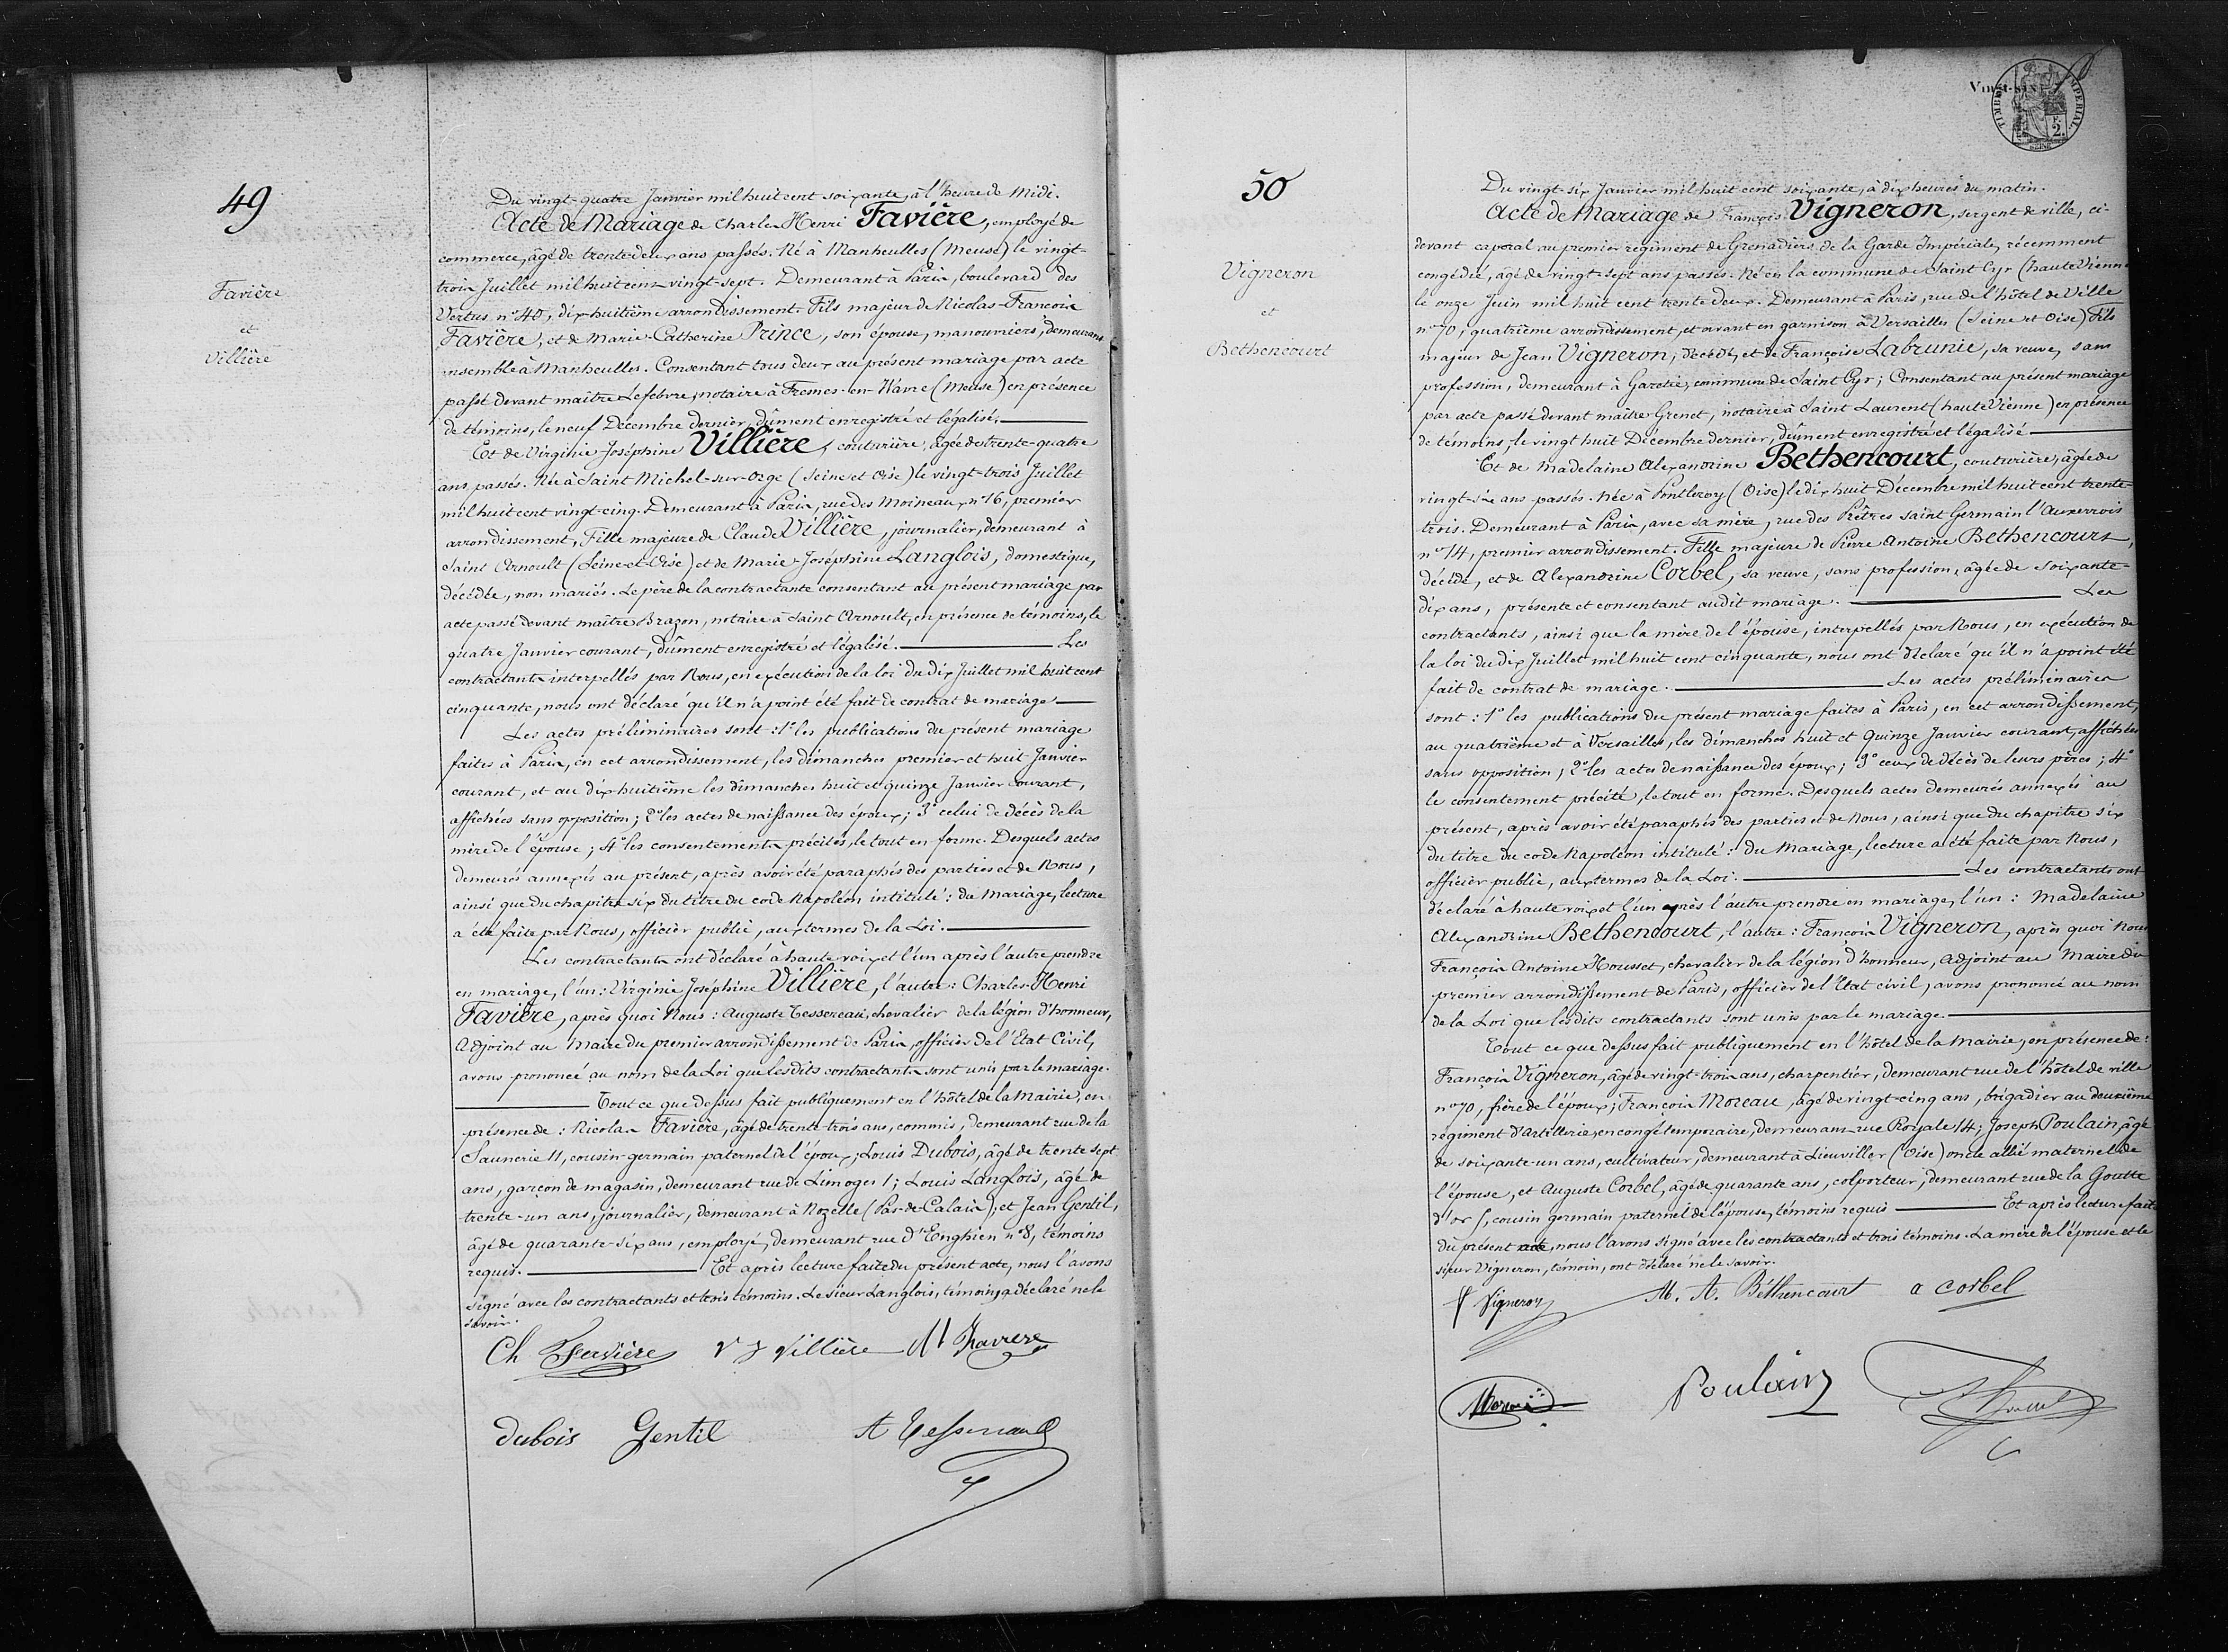 49
Favière
et
Villière
Du vingt-quatre Janvier mil huit cent soixante, à l'heure de Midi.
Acte de Mariage de Charles Henri Favière, employé de
commerce, âgé de trente-deux ans passés. Né à Manheulles (Meuse) le vingt-
trois Juillet mil huit cent vingt-sept. Demeurant à Paris, boulevard des
Vertus n° 40, dix-huitième arrondissement. Fils majeur de Nicolas-François
Favière, et de Marie-Catherine Prince, son épouse, manouvriers, demeurans
ensemble à Manheulles. Consentant tous deux au présent mariage par acte
passé devant maître Lefebvre, notaire à Fresnes-en-Wavre (Meuse) en présence
de témoins, le neuf Décembre dernier, dûment enregistré et légalisé.
Et de Virginie Joséphine Villière, couturière, âgée de trente-quatre
ans passés. Née à Saint Michel-sur-Orge (Seine et Oise) le vingt-trois Juillet
mil huit cent vingt-cinq. Demeurant à Paris, rue des Moineaux n° 16, premier
arrondissement, Fille majeure de Claude Villière, journalier, demeurant à
Saint Arnoult (Seine-et-Oise) et de Marie-Joséphine Langlois, domestique,
décédée, non mariés. Le père de la contractante consentant au présent mariage par
acte passé devant maître Brazon, notaire à Saint Arnoult, en présence de témoins, le
quatre Janvier courant, dûment enregistré et légalisé. Les
contractants interpellés par Nous, en exécution de la loi du dix Juillet mil huit cent
cinquante, nous ont déclaré qu'il n'a point été fait de contrat de mariage
Les actes préliminaires sont : 1° les publications du présent mariage
faites à Paris, en cet arrondissement, les dimanches premier et huit Janvier
courant, et au dix-huitième les dimanches huit et quinze Janvier courant,
affichées sans opposition ; 2° les actes de naissance des époux ; 3° celui de décès de la
mère de l'épouse ; 4° les consentements précités, le tout en forme. Desquels actes
demeurés annexés au présent, après avoir été paraphés des parties et de Nous,
ainsi que du chapitre six du titre du code Napoléon intitulé : du Mariage, lecture
a été faite par Nous, officier public, aux termes de la Loi.
Les contractants ont déclaré à haute voix et l'un après l'autre prendre
en mariage, l'un : Virginie Joséphine Villière, l'autre : Charles-Henri
Favière, après quoi Nous : Auguste Tessereau, chevalier de la légion d'honneur,
Adjoint au Maire du premier arrondissement de Paris, officier de l'Etat Civil,
avons prononcé au nom de la Loi que lesdits contractants sont unis par le mariage.
Tout ce que dessus fait publiquement en l'hôtel de la Mairie, en
présence de : Nicolas Favière, âgé de trente trois ans, commis, demeurant rue de la
Saunerie 11, cousin-germain paternel de l'époux ; Louis Dubois, âgé de trente sept
ans, garçon de magasin, demeurant rue de Limoges 1 ; Louis Langlois, âgé de
trente-un ans, journalier, demeurant à Nozelle (Pas-de-Calais), et Jean Gentil,
âgé de quarante-six ans, employé, demeurant rue d'Enghien n° 8, témoins
requis. Et après lecture faite du présent acte, nous l'avons
signé avec les contractants et trois témoins. Le sieur Langlois, témoin, a déclaré ne le
savoir.
Ch Favière V J Villière N Faviere
Dubois Gentil A Tessereau
Vingt-six
TIMBRE IMPERIAL
2.
SEINE
50
Vigneron
et
Bethencourt
Du vingt-six Janvier mil huit cent soixante, à dix heures du matin.
Acte de Mariage de François Vigneron, sergent de ville, ci-
devant caporal au premier régiment de Grenadiers de la Garde Impériale, récemment
congédié, âgé de vingt-sept ans passés. Né en la commune de Saint Cyr (haute Vienne
le onze Juin mil huit cent trente deux. Demeurant à Paris, rue de l'hôtel de Ville
n° 70, quatrième arrondissement, et avant en garnison à Versailles (Seine et Oise) Fils
majeur de Jean Vigneron, décédé, et de Françoise Labrunie, sa veuve, sans
profession, demeurant à Garotié, commune de Saint Cyr ; Consentant au présent mariage
par acte passé devant maître Grenet, notaire à Saint Laurent (haute Vienne) en présence
de témoins, le vingt huit Décembre dernier, dûment enregistré et légalisé
Et de Madelaine Alexandrine Bethencourt, couturière, âgée de
vingt-six ans passés. Née à Pontleroy (Oise) le dix huit Décembre mil huit cent trente-
trois. Demeurant à Paris, avec sa mère, rue des Prêtres Saint Germain l'Auxerrois
n° 14, premier arrondissement. Fille majeure de Pierre Antoine Bethencourt,
décédé, et de Alexandrine Corbel, sa veuve, sans profession, âgée de soixante-
dix ans, présente et consentant audit mariage. Les
contractants, ainsi que la mère de l'épouse, interpellés par Nous, en exécution de
la loi du dix Juillet mil huit cent cinquante, nous ont déclaré qu'il n'a point été
fait de contrat de mariage. Les actes préliminaires
sont : 1° les publications du présent mariage faites à Paris, en cet arrondissement,
au quatrième et à Versailles, les dimanches huit et quinze Janvier courant, affichées
sans opposition ; 2° les actes de naissance des époux ; 3° ceux de décès de leurs pères ; 4°
le consentement précité, le tout en forme. Desquels actes demeurés annexés au
présent, après avoir été paraphés des parties et de Nous, ainsi que du chapitre six
du titre du code Napoléon intitulé : du Mariage, lecture a été faite par Nous,
officier public, aux termes de la Loi. Les contractants ont
déclaré à haute voix et l'un après l'autre prendre en mariage, l'un : Madelaine
Alexandrine Bethencourt, l'autre : François Vigneron, après quoi Nous
François Antoine Housset, chevalier de la légion d'honneur, Adjoint au Maire du
premier arrondissement de Paris, officier de l'Etat civil, avons prononcé au nom
de la Loi que lesdits contractants sont unis par le mariage.
Tout ce que dessus fait publiquement en l'hôtel de la Mairie, en présence de :
François Vigneron, âgé de vingt-trois ans, charpentier, demeurant rue de l'hôtel de ville
n° 70, frère de l'époux ; François Moreau, âgé de vingt-cinq ans, brigadier au deuxième
régiment d'artillerie, en congé temporaire, demeurant rue Royale 14 ; Joseph Poulain, âgé
de soixante-un ans, cultivateur, demeurant à Lieuviller (Oise) oncle allié maternel de
l'épouse, et Auguste Corbel, âgé de quarante ans, colporteur, demeurant rue de la Goutte
d'or 5, cousin germain paternel de l'épouse, témoins requis Et après lecture faite
du présent acte, nous l'avons signé avec les contractants et trois témoins. La mère de l'épouse et le
sieur Vigneron, témoin, ont déclaré ne le savoir.
f Vigneron M. A. Béthencourt a corbel
Moreau Poulain